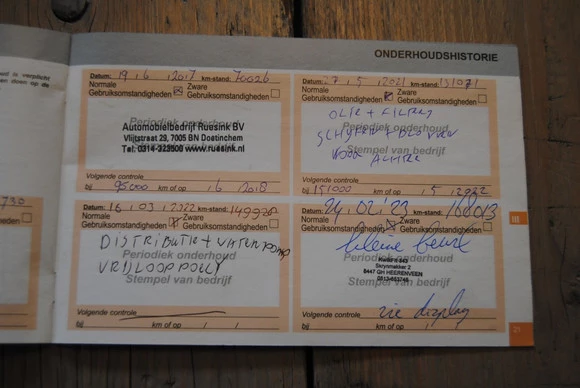 ONDERHOUDSHISTORIE
Datum: 19 . 6 . 2017 km-stand: 70026
Normale Gebruiksomstandigheden
Zware Gebruiksomstandigheden
Periodiek onderhoud
Automobielbedrijf Ruesink BV
Vlijtstraat 29, 7005 BN Doetinchem
Tel: 0314-323500 www.ruesink.nl
Stempel van bedrijf
Volgende controle
bij 95000 km of op . 6 . 2018
Datum: 7 . 5 . 2021 km-stand: 131071
Normale Gebruiksomstandigheden
Zware Gebruiksomstandigheden
OLIE + FILTERS
Periodiek onderhoud
SCHIJVEN +
Stempel van bedrijf
VOOR
Volgende controle
bij 151000 km of op . 5 . 2022
730
Datum: 16 . 03 . 2022 km-stand:
Normale Gebruiksomstandigheden
Zware Gebruiksomstandigheden
DISTRIBUTIE + WATERPOMP
Periodiek onderhoud
VRIJLOOP POELY
Stempel van bedrijf
Volgende controle
bij km of op
Datum: 24 . 02 . 23 km-stand: 160013
Normale Gebruiksomstandigheden
Zware Gebruiksomstandigheden
kleine beurt
Periodiek onderhoud
8447 GH HEERENVEEN
Stempel van bedrijf
Volgende controle
zie display
bij km of op
21